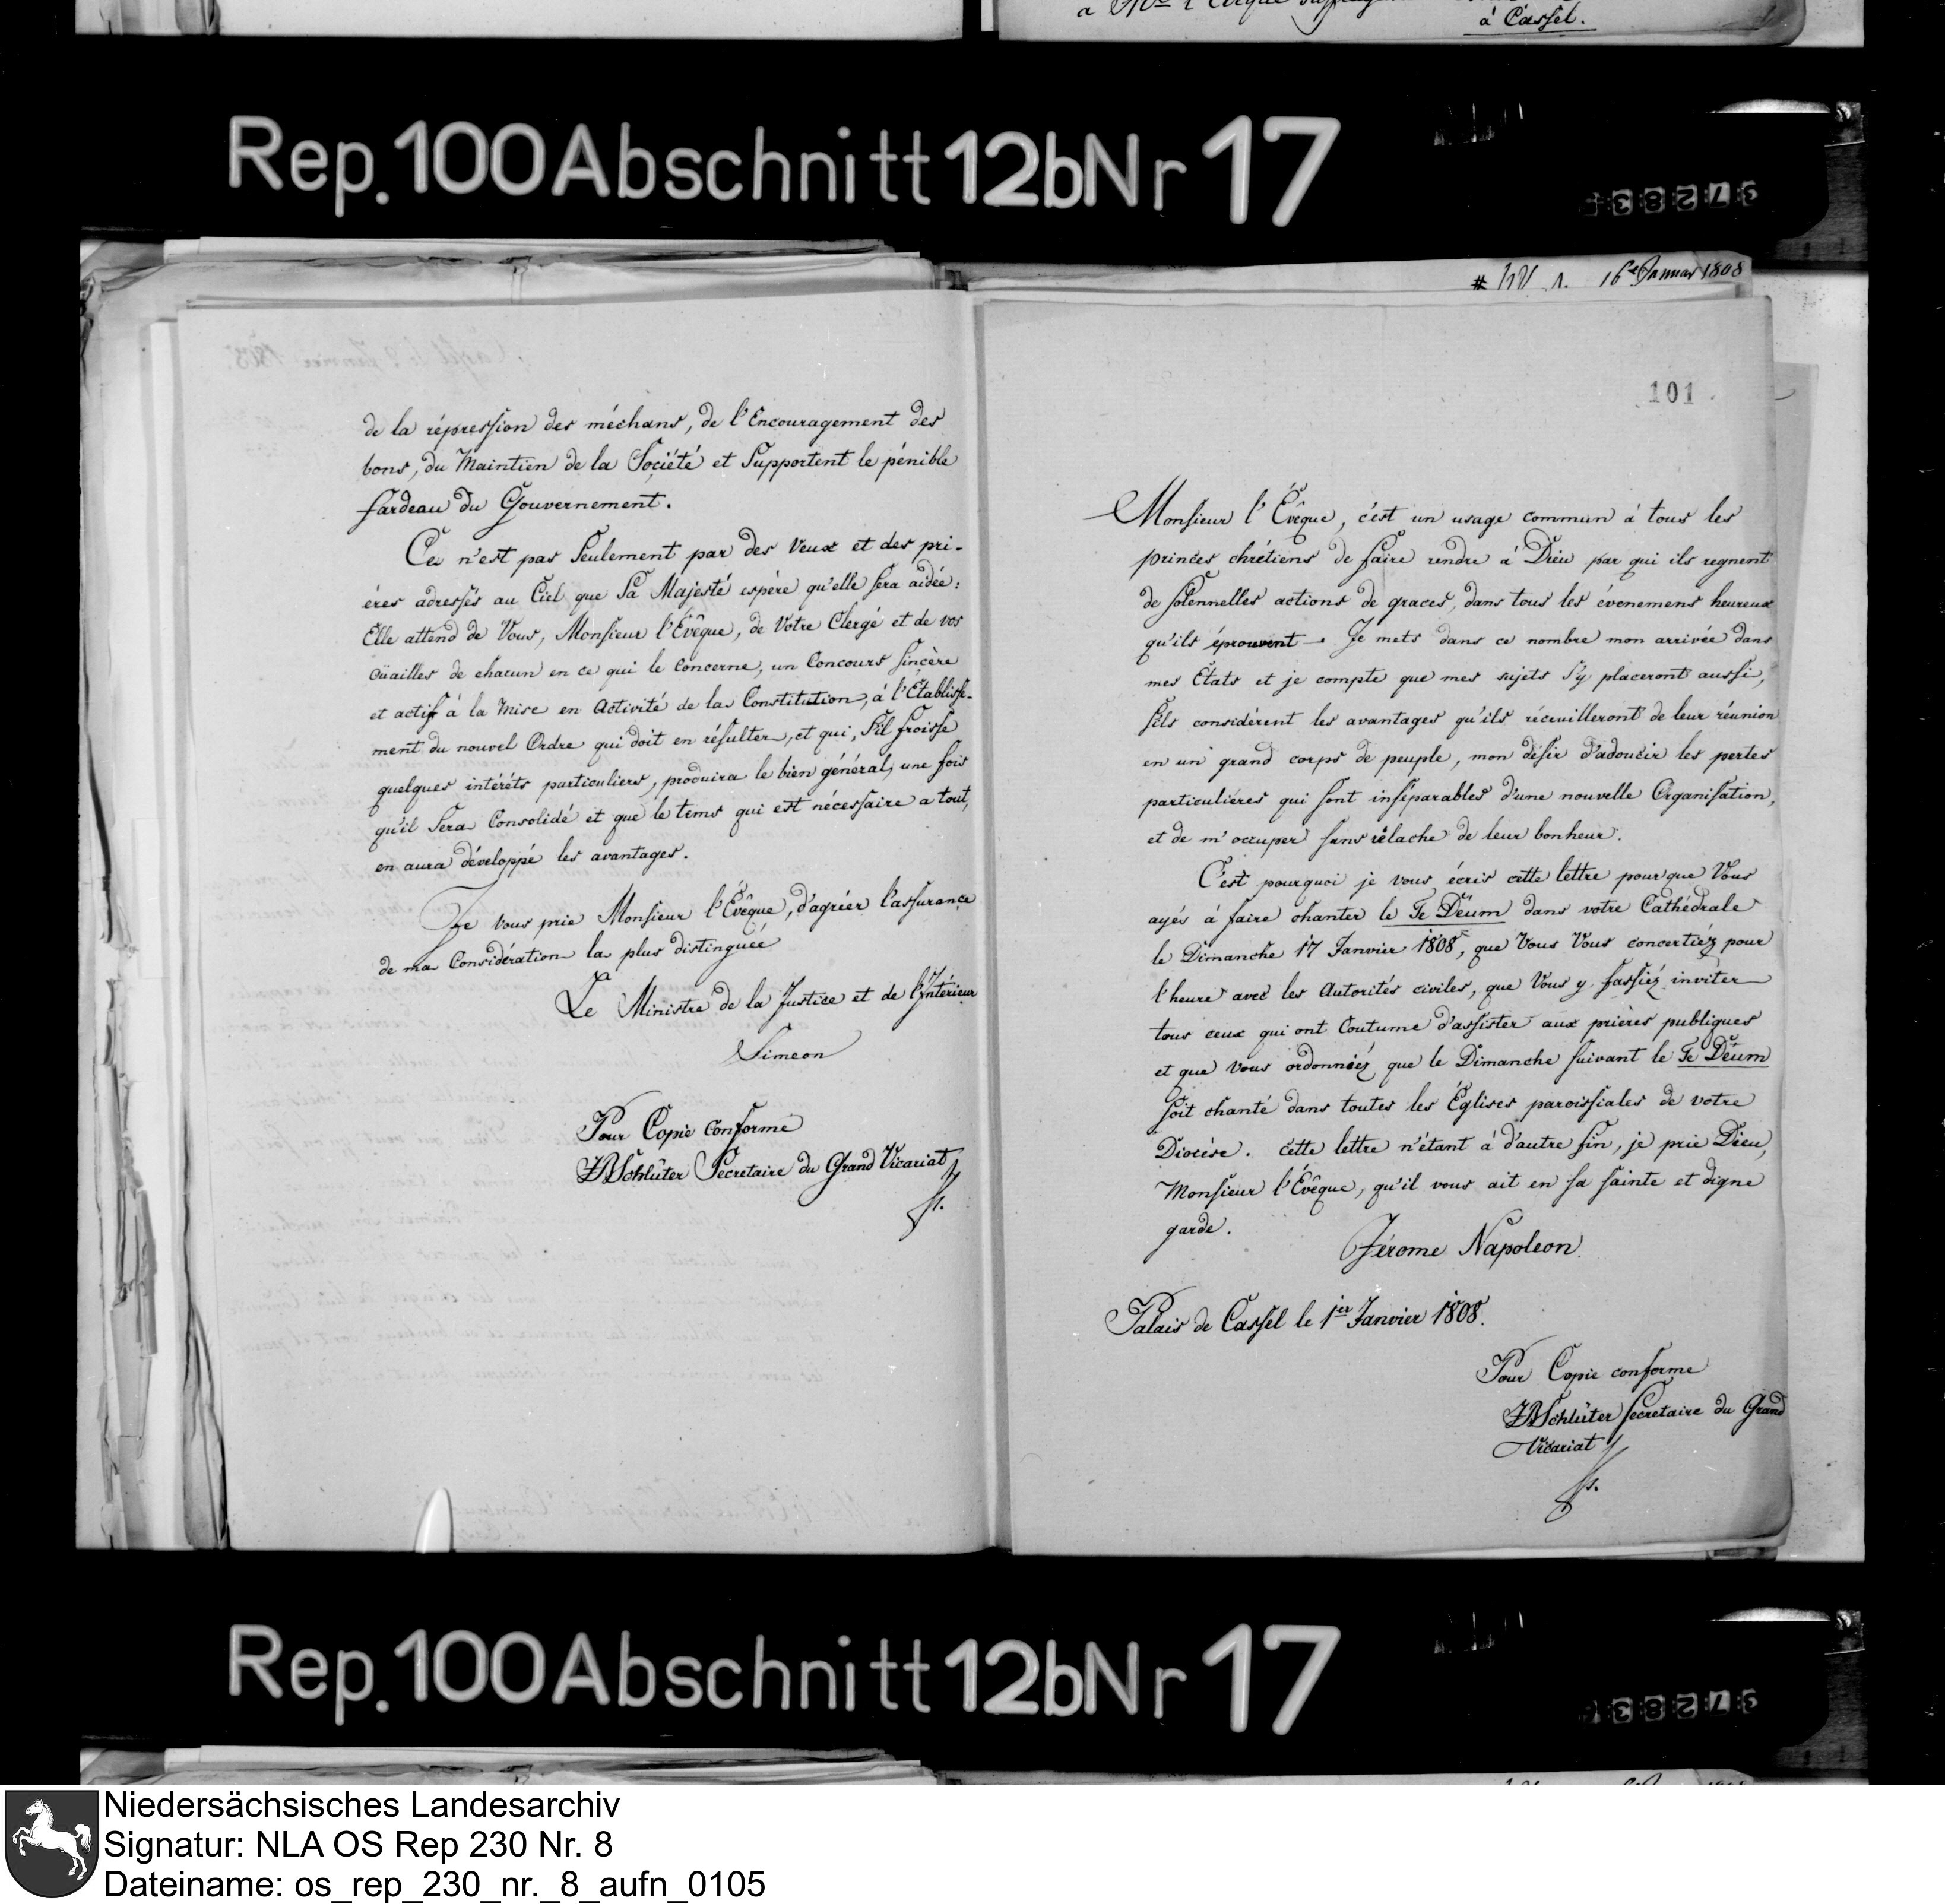 à Cassel.
Rep. 100 Abschnitt 12b Nr 17
16e Januar 1808
de la répression des méchans, de l'Encouragement des
bons, du Maintien de la Société et Supportent le pénible
fardeau du Gouvernement.
Ce n'est pas Seulement par des Veux et des pri-
éres adressés au Ciel que Sa Majesté espère qu'elle sera aidée:
Elle attend de Vous, Monsieur l'Evêque, de Votre Clergé et de vos
oüailles de chacun en ce qui le Concerne, un Concours sincère
et actif à la Mise en Activité de la Constitution, à l'Etablisse-
ment du nouvel Ordre qui doit en résulter, et qui, s'il froisse
quelques intérêts particuliers, produira le bien général, une fois
qu'il Sera Consolidé et que le tems qui est nécessaire a tout,
en aura développé les avantages.
Je vous prie Monsieur l'Évêque, d'agréer l'assurance
de ma Considération la plus distinguée
Le Ministre de la Justice et de l'Intérieur
Simeon
Pour Copie conforme
JBSchlüter Secretaire du Grand Vicariat
101
Monsieur l'Évêque, c'est un usage commun à tous les
princes chrétiens de faire rendre à Dieu par qui ils regnent
de solennelles actions de graces, dans tous les évenemens heureux
qu'ils éprouvent. Je mets dans ce nombre mon arrivée dans
mes États et je compte que mes sujets s'y placeront aussi,
s'ils considérent les avantages qu'ils réceuilleront de leur réunion
en un grand corps de peuple, mon désir d'adoucir les pertes
particulières qui sont inséparables d'une nouvelle Organisation,
et de m'occuper sans relache de leur bonheur.
C'est pourquoi je vous écris cette lettre pourque Vous
ayés à faire chanter le Te Deum dans votre Cathédrale
le Dimanche 17 Janvier 1808, que Vous Vous concertiéz pour
l'heure avec les Autorités civiles, que Vous y fassiéz inviter
tous ceux qui ont Coutume d'assister aux prières publiques
et que Vous ordonniéz que le Dimanche suivant le Te Deum
soit chanté dans toutes les Églises paroissiales de votre
Diocèse. cette lettre n'étant à d'autre fin, je prie Dieu,
Monsieur l'Évêque, qu'il vous ait en sa sainte et digne
garde.
Jérome Napoleon.
Palais de Cassel le 1ier Janvier 1808.
Pour Copie conforme
JBSchlüter Secretaire du Grand
Vicariat
Rep. 100 Abschnitt 12b Nr 17
Niedersächsisches Landesarchiv
Signatur: NLA OS Rep 230 Nr. 8
Dateiname: os_rep_230_nr._8_aufn_0105